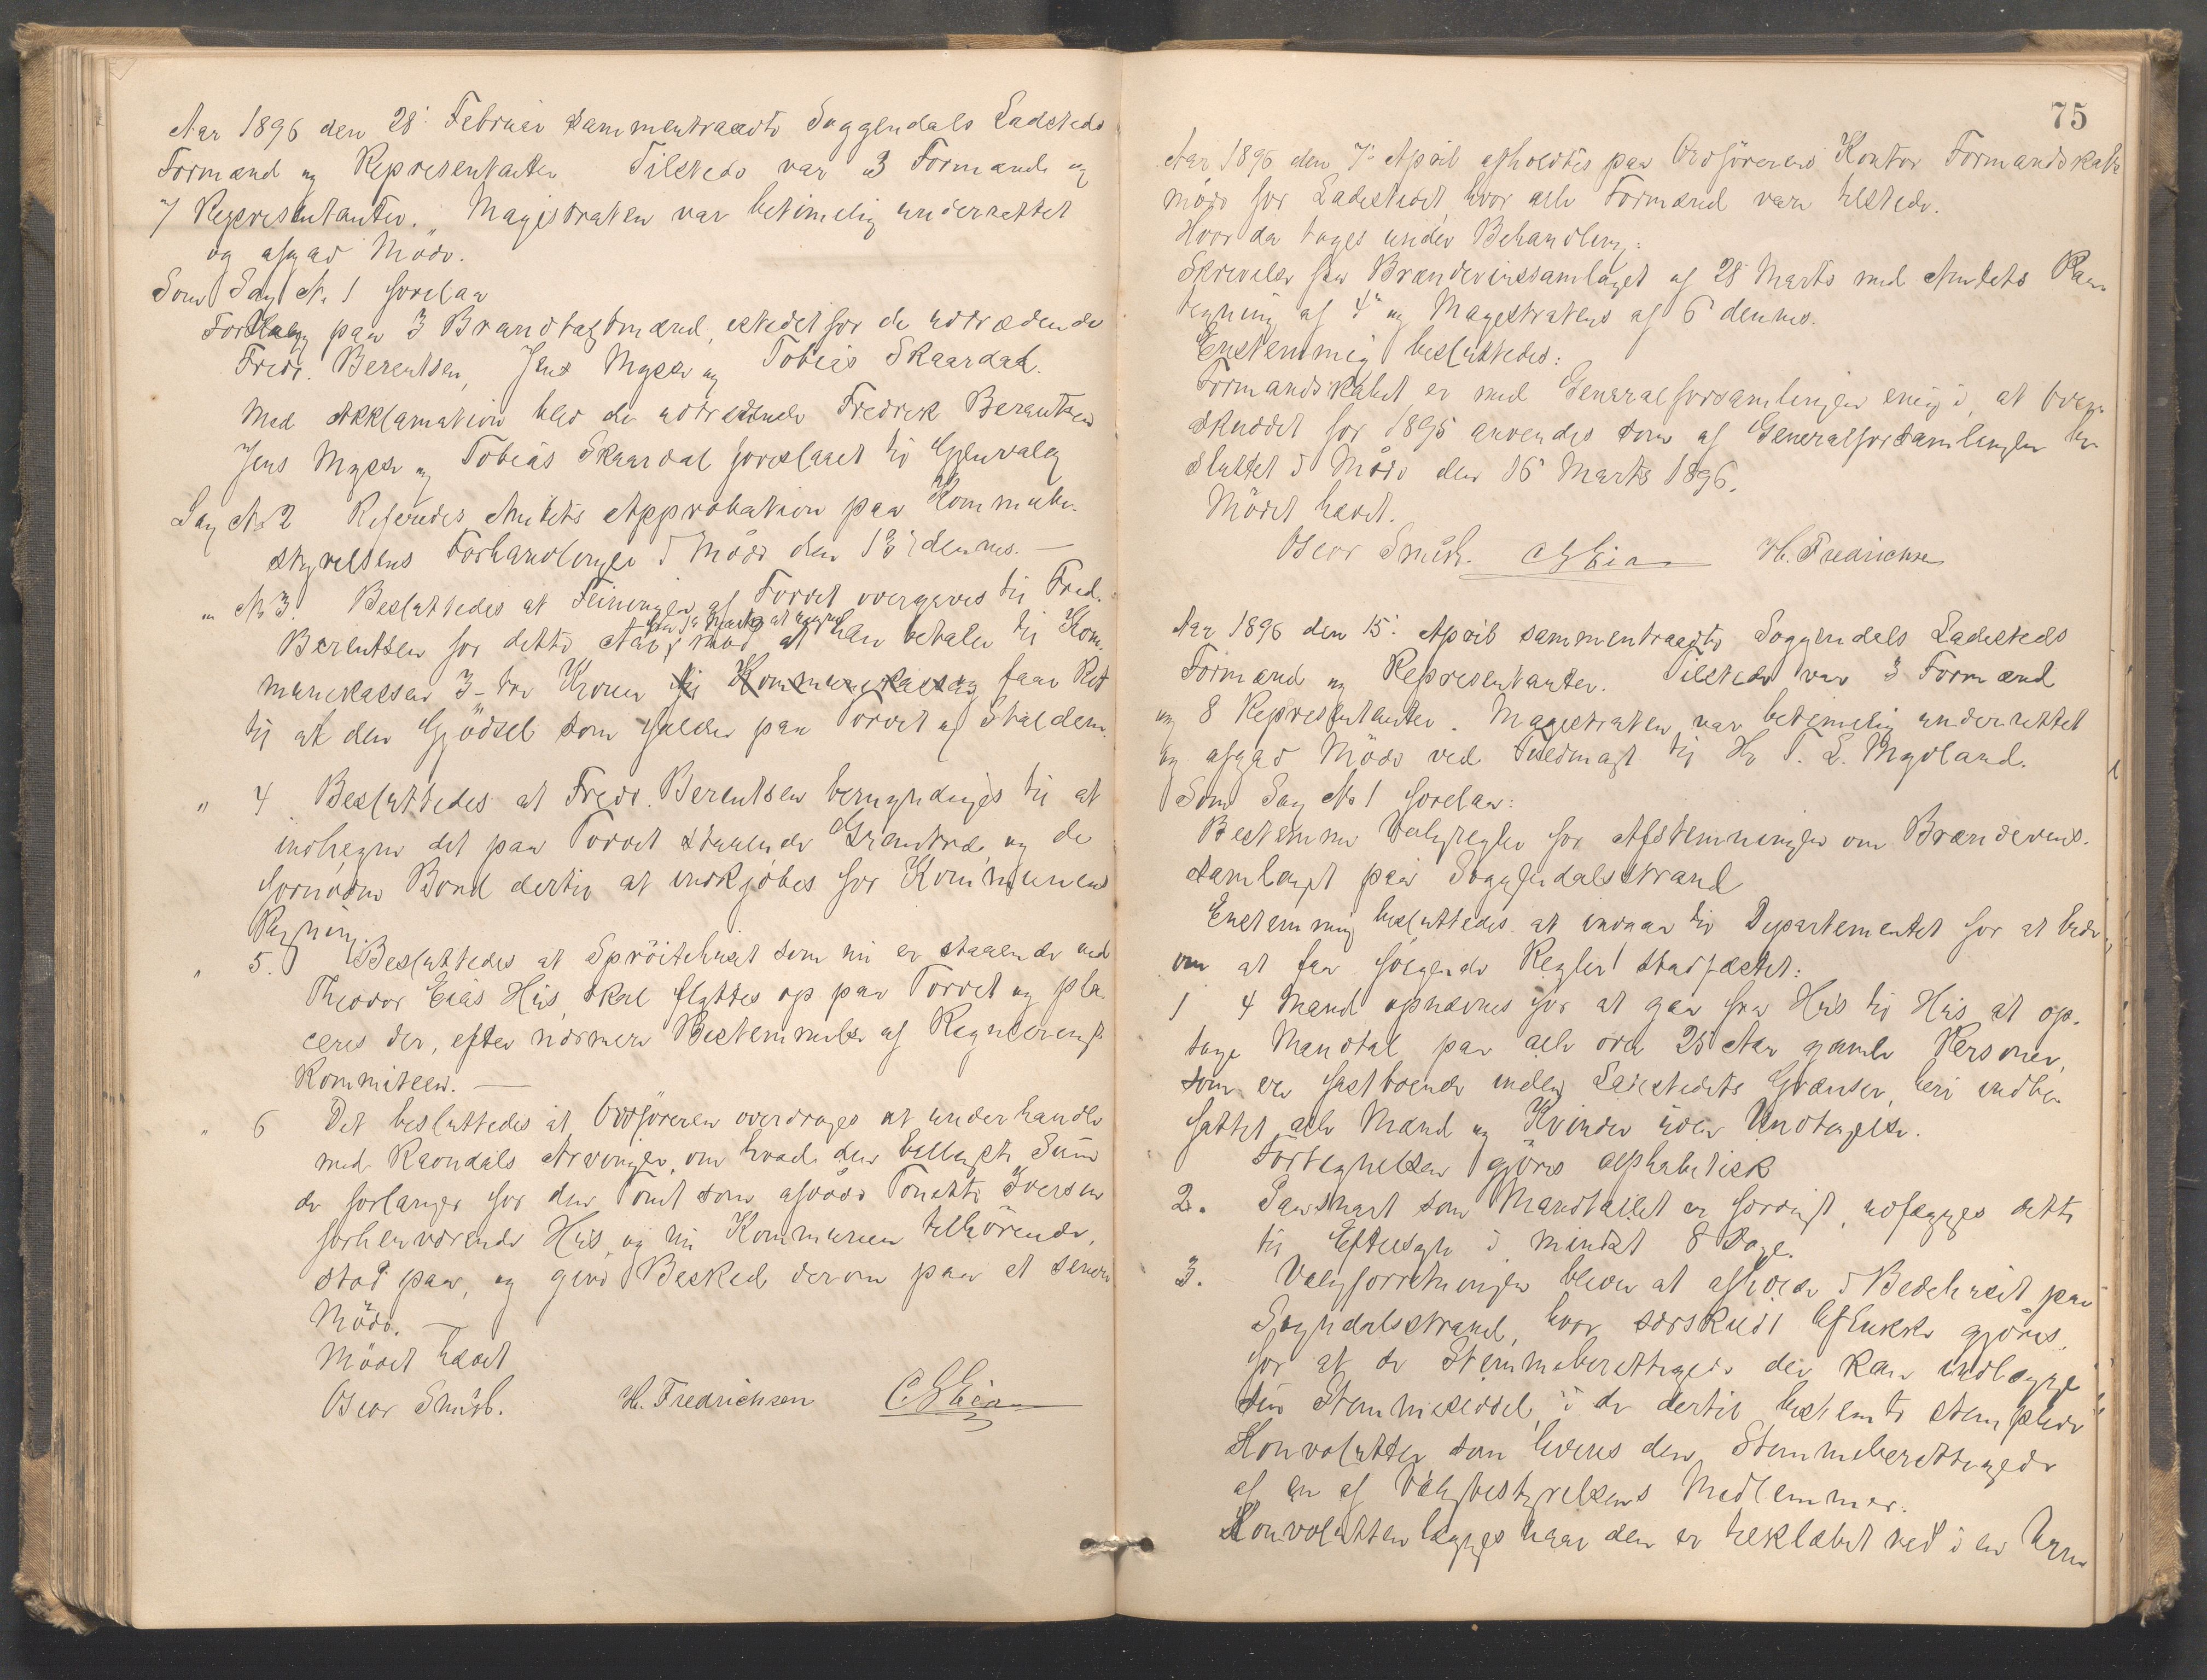 Aar 1896 den 28' Februar sammentraadte Soggendals Ladesteds
Formænd og Repræsentanter Tilstede var 3 Formænd og
7 Repræsentanter. Magistraten var betimelig underrettet
og afgav Møde.
Som Sag No 1 forelaa
Forslag paa 3 Brandtaxtmænd, istedetfor de udtrædende
Fredr. Berentsen, Jens Mysse og Tobias Skaardal.
Med Akklamation blev de udtrædende Fredrik Berentsen
Jens Mysse og Tobias Skaardal foreslaaet til Gjenvalg
Sag No 2 Referedes Amtets Approbation paa Kommune-
styrelsens Forhandlinger i Møde den 13' dennes. —
" No 3. Besluttedes at Feiningen af Torvet overgaves til Fred.
Berentsen for dette Aar, mod at han betaler til Kom-
munekassen 3- tre Kroner faar Ret
til at den Gjødsel som falder paa Torvet af Stalden.
" 4 Besluttedes at Fredr. Berentsen bemyndiges til at
indhegne det paa Torvet staaende Grantræ, og de
fornødne Bord dertil at indkjøbes for Kommunens
Regning.
" 5. Besluttedes at Sprøitehuset som nu er staaende ved
Theodor Eias Hus, skal flyttes op paa Torvet og pla-
ceres der, efter nærmere Bestemmelse af Regulerings
Kommiteen. —
" 6 Det besluttedes at Ordføreren overdrages at underhandle
med Raondals Arvinger, om hvad den billigste Sum
de forlanger for den Tomt som afdøde Tonette Iversens
forhenværende Hus, og nu Kommunen tilhørende,
stod paa, og give Besked derom paa et senere
Møde. —
Mødet hævet
Oscar Smith. H. Fredrichsen C S Eia
75
Aar 1896 den 7' April afholdtes paa Ordførerens Kontor Formandskabs
møde for Ladestedet, hvor alle Formænd vare tilstede.
Hvor da toges under Behandling:
Skrivelse fra Brændevinssamlaget af 28' Marts med Amtets Paa-
tegning af 4' og Magistratens af 6' dennes.
Enstemmig besluttedes:
Formandskabet er med Generalforsamlingen enig i, at Over-
skuddet for 1895 anvendes som af Generalforsamlingen be-
sluttet i Møde den 16' Marts 1896.
Mødet hævet.
Oscar Smith. C S Eia H. Fredrichsen
Aar 1896 den 15' April sammentraadte Soggendals Ladesteds
Formænd og Repræsentanter. Tilstede var 3 Formænd
og 8 Repræsentanter. Magistraten var betimelig underrettet
og afgav Møde ved Fuldmagt til Hr T. L. Mydland.
Som Sag No 1 forelaa:
Bestemme Valgregler for Afstemningen om Brændevins-
samlaget paa Soggendalsstrand
Enstemmig besluttedes at indgaa til Departementet for at bede
om at faa følgende Regler stadfæstet:
1 4 Mænd opnævnes for at gaa fra Hus til Hus at op-
tage Mandtal paa alle over 25 Aar gamle Personer,
som er fastboende inden Ladestedets Grænser, heri indbe-
fattet alle Mænd og Kvinder uden Undtagelse.
Fortegnelsen gjøres alphabetisk
2. Saasnart som Mandtallet er færdigt, udlægges dette
til Eftersyn i mindst 8 Dage.
3. Valgforretningen bliver at afholde i Bedehuset paa
Sogndalsstrand, hvor særskildt Aflukke gjøres,
for at de Stemmeberettigede der kan indlægge
sin Stemmeseddel, i de dertil bestemte stemplede
Konvolutter som leveres den Stemmeberettigede
af en af Valgbestyrelsens Medlemmer.
Konvolutten lægges naar den er tilklæbet ned i en Urne